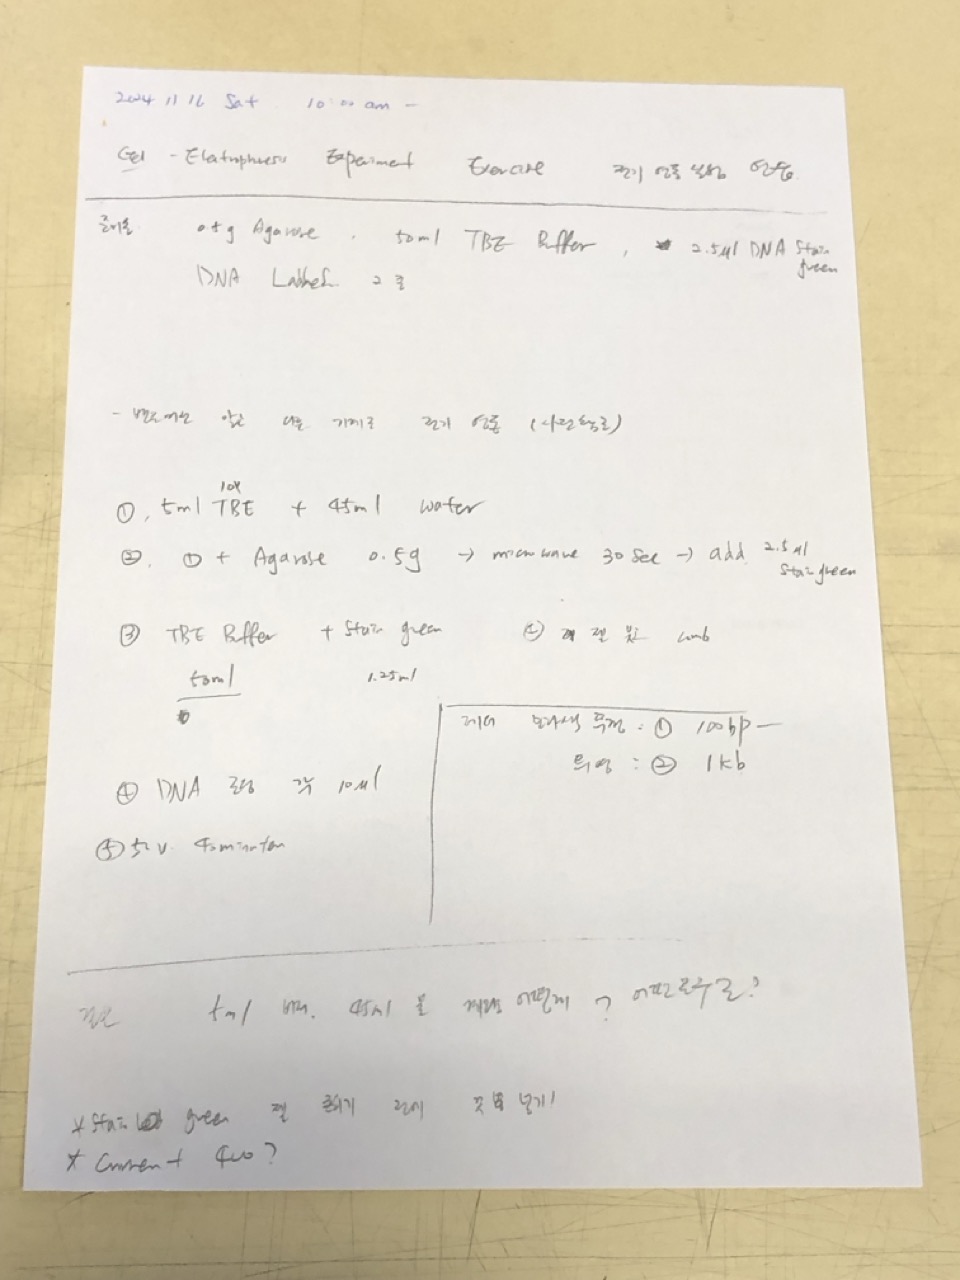 2024 11 16 Sat 10:00 am -
Gel - Elatrophoresis Experiment Exercise 전기 영동 실험 연습
준비물 0.5g Agarose, 50ml TBE Buffer, 2.5μl DNA Stain green
DNA Ladder 2
- 전기 영동
① 5ml 10X TBE + 45ml water
②. ① + Agarose 0.5g → microwave 30 sec → add 2.5μl Stain green
③ TBE Buffer + Stain green
50ml 1.25ml
comb
보라색 뚜껑 : ① 100bp —
투명 : ② 1kb
④ DNA 로딩 각 10μl
⑤ 40 minutes
질문 5ml 버퍼. 45ml 물 계량 어떻게? 어떤 도구로?
* Stain green 젤 전에 넣기!
* Current 400?